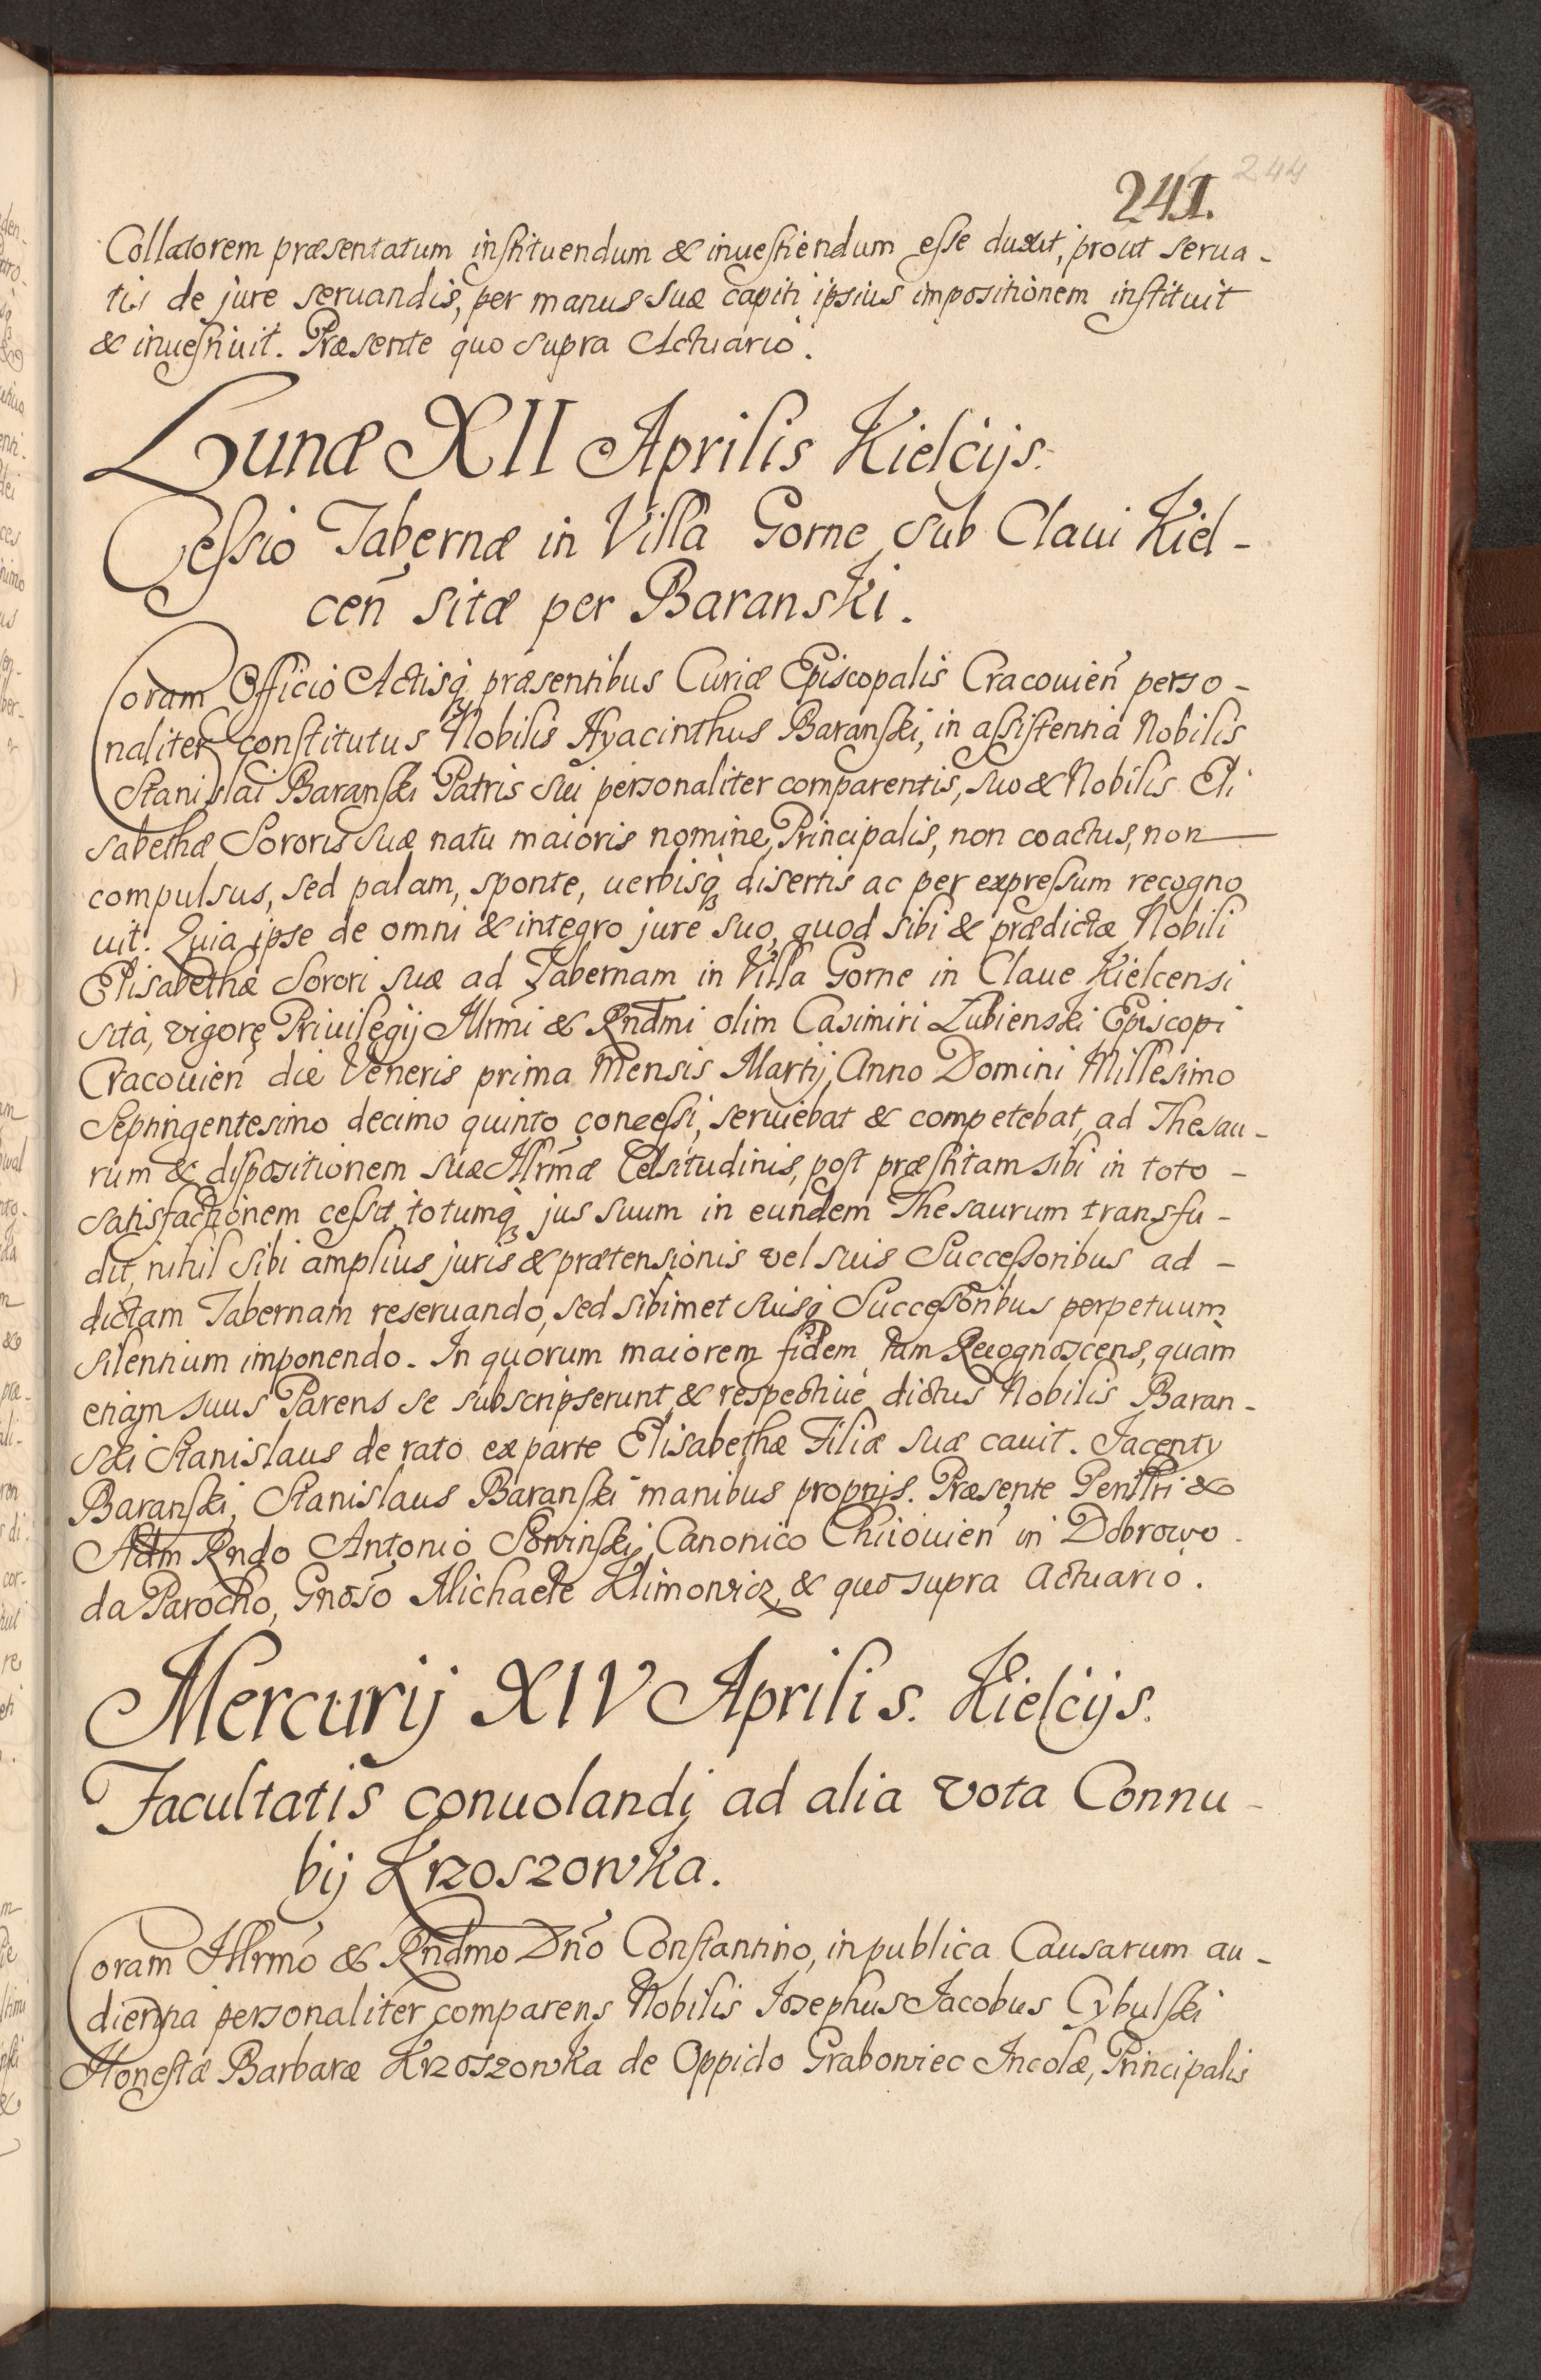 244
241.
Collatorem præsentatum instituendum & inuestiendum esse duxit, prout serua-
tis de jure seruandis, per manus suæ capiti ipsius impositionem instituit
& inuestiuit. Præsente quo supra Actuario.
Lunæ XII Aprilis Kielcijs.
Cessio Tabernæ in Villa Gorne sub Claui Kiel-
cen̄ sitæ per Baranski.
Coram Officio Actisq̨ præsentibus Curiæ Episcopalis Cracouien̄ perso-
naliter constitutus Nobilis Hyacinthus Baranski, in assistentia Nobilis
Stanislai Baranski Patris sui personaliter comparentis, suo & Nobilis Eli
sabethæ Sororis suæ natu maioris nomine, Principalis, non coactus, non
compulsus, sed palam, sponte, uerbisq̨ disertis ac per expressum recogno
uit. Quia ipse de omni & integro jure suo, quod sibi & prædictæ Nobili
Elisabethæ Sorori suæ ad Tabernam in Villa Gorne in Claue Kielcensi
sita, vigore Priuilegij Illrmi & Rndmi olim Casimiri Lubienski Episcopi
Cracouien̄ die Veneris prima Mensis Martij Anno Domini Millesimo
Septingentesimo decimo quinto concessi, seruiebat & competebat, ad Thesau-
rum & dispositionem suæ Illrmæ Celsitudinis, post præstitam sibi in toto -
satisfactionem cessit, totumq̨ jus suum in eundem Thesaurum transfu-
dit, nihil sibi amplius juris & prætensionis vel suis Successoribus ad -
dictam Tabernam reseruando, sed sibimet suisq̨ Successoribus perpetuum
silentium imponendo. In quorum maiorem fidem tam Recognoscens, quam
etiam suus Parens se subscripserunt & respectiue dictus Nobilis Baran-
ski Stanislaus de rato ex parte Elisabethæ Filiæ suæ cauit. Jacenty
Baranski, Stanislaus Baranski manibus proprijs. Præsente Perillri &
Adm Rndo Antonio Slowinski, Canonico Chiiouien̄ in Dobrowo-
da Parocho, Gnoso Michaele Klimowicz & quo supra Actuario.
Mercurij XIV Aprilis. Kielcijs.
Facultatis conuolandi ad alia vota Connu-
bij Krzoszowka.
Coram Illrmo & Rndmo Dn̄o Constantino, in publica Causarum au-
dientia personaliter comparens Nobilis Josephus Jacobus Cybulski
Honestæ Barbaræ Krzoszowka de Oppido Grabowiec Incolæ, Principalis